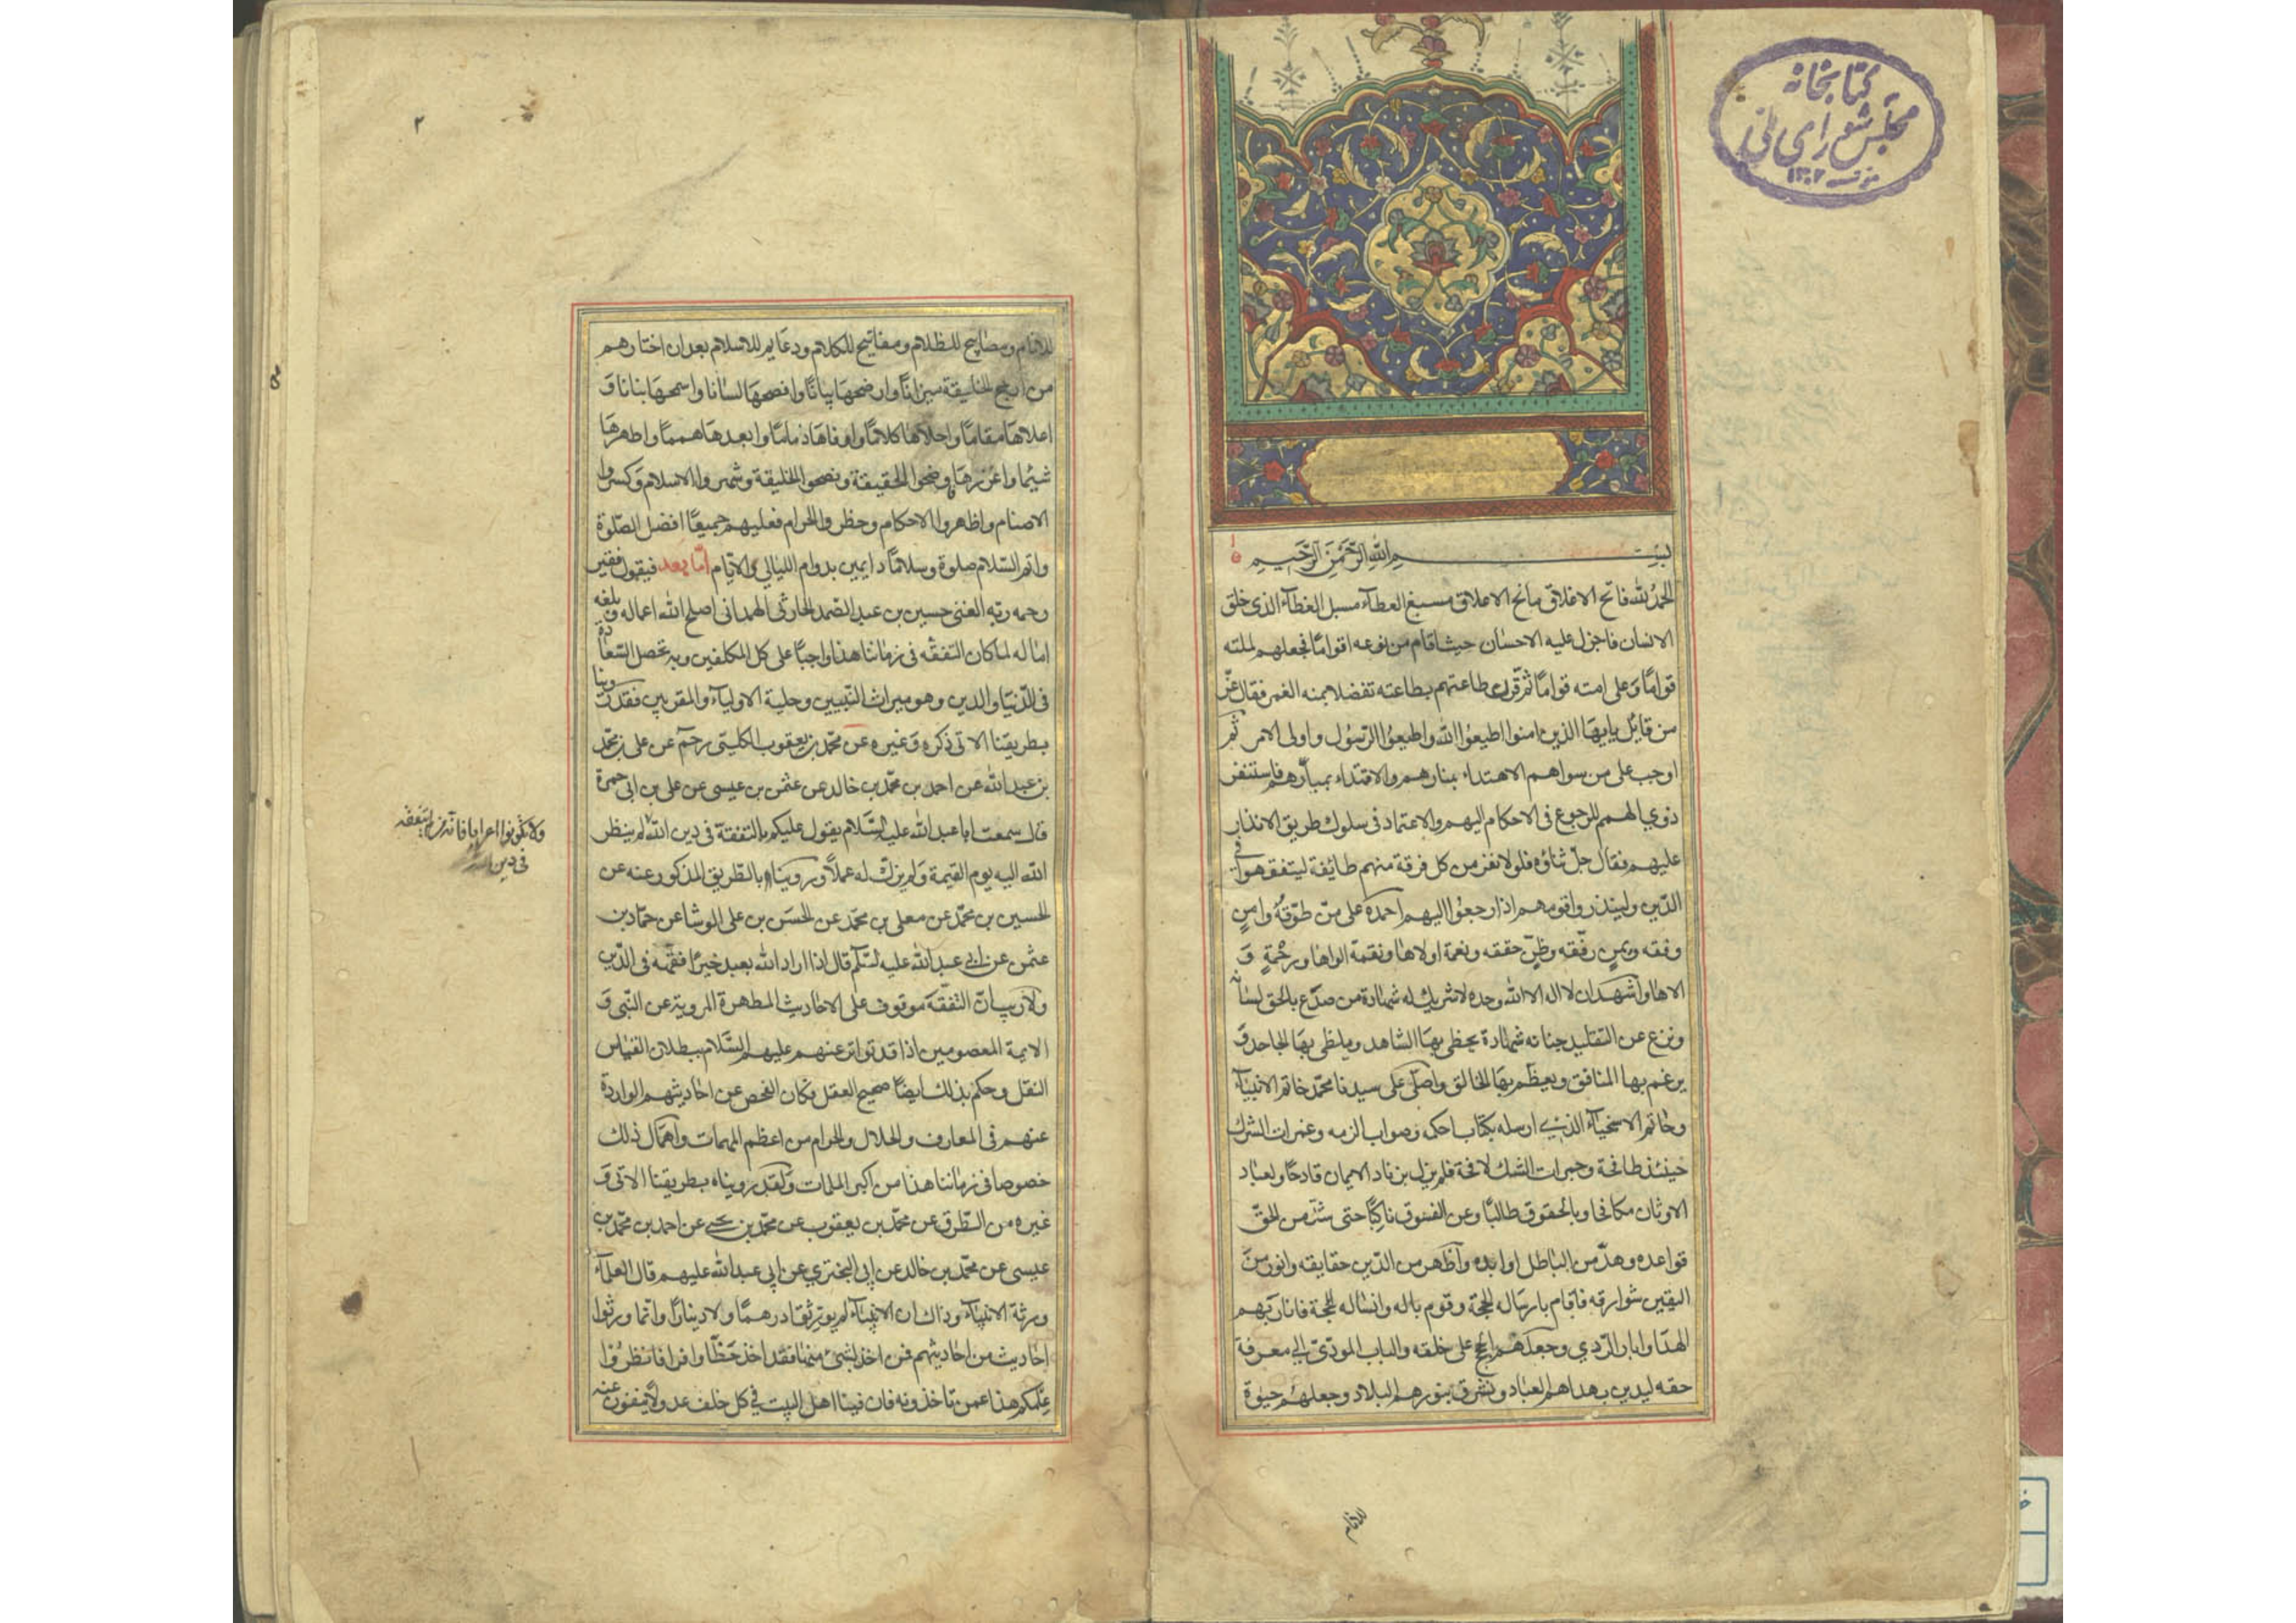 كتابخانه
مجلس شورای ملی
مؤسسه ۱۳۰۲
بسم الله الرحمن الرحيم
الحمد لله فاتح الاغلاق مانح الاعلاق مسبغ العطآء مسبل الغطآء الذى خلق
الانسان فاجزل عليه الاحسان حيث اقام من نوعه اقوامًا فجعلهم لملته
قوامًا وَعلى امته قوامًا ثم قرن طاعتهم بطاعته تفضلا منه الغمر فقال عزّ
من قائل يايها الذين ءامنوا اطيعوا الله واطيعوا الرّسول واولى الامر ثم
اوجب على من سواهم الاهتداء بمنارهم والاقتداء فاستنفر
ذوي الهمم للرجوع فى الاحكام اليهم والاعتماد فى سلوك طريق الانذار
عليهم فقال جلّ ثناؤه فلولا نفر من كل فرقة منهم طائفة ليتفقهوا فى
الدّين ولينذروا قومهم اذا رجعوا اليهم احمده على منّ طوّقه وامرٍ
وفقه ويمنٍ رفّقه وظنّ حققه ونعمة اولاها ونقمة الواها ورحمةٍ وَ
الاها واشهد ان لا اله الا الله وحده لا شريك له شهادة من صدّع بالحق لسانه
ونزع عن التقليد جنانه شهادة يحظى بها الشاهد ويلظى بها الجاحد وَ
يرغم بها المنافق ويعظم بها الخالق واصلّى على سيدنا محمّد خاتم الانبيآء
وخاتم الاسخيآء الذى ارسله بكتاب احكمه وصواب الزمه وغمرات الشرك
حينئذ طافحة وجمرات الشك لافحة فلم يزل بزناد الايمان قادحًا ولعباد
الاوثان مكافحا وبالحقوق طالبًا وعن الفسوق ناكبًا حتى شدّ من الحقّ
قواعده وهدّ من الباطل اوابده وَاظهر من الدّين حقايقه وانور من
اليقين شوارقه فاقام بارساله الحجة وقوم باله وانساله المحجة فانار بهم
الهدا وابار الرّدي وجعلهم الحجج على خلقه والباب المودّى الى معرفة
حقه ليدين بهداهم العباد وتشرق بنورهم البلاد وجعلهم حيوة
للانام
۲
للانام ومصابيح للظلام ومفاتيح للكلام ودعايم للاسلام بعد ان اختارهم
من ارجح الخليقة ميزانًا واوضحها بيانًا وافصحها لسانا واسمحها بنانا وَ
اعلاها مقامًا واحلاها كلامًا واوفاها ذمامًا وابعدها هممًا واطهرها
شيمًا واغزرها فوضحوا الحقيقة ونصحوا الخليقة وشمروا للاسلام وَكسروا
الاصنام واظهروا الاحكام وحظروا الحرام فعليهم جميعًا افضل الصّلوة
واتم السّلام صلوة وسلامًا دايمين بدوام الليالي والايّام امّا بعد فيقول فقير
رحمه ربّه الغنى حسين بن عبد الصّمد الحارثى الهمدانى اصلح الله اعماله وبلغه
اماله لما كان التفقّه فى زماننا هذا واجبًا على كل المكلفين وبه تحصل السّعادة
فى الدّنيا والدين وهو ميراث النّبيين وحلية الاوليآء والمقربين فقد روينا
بطريقنا الاتى ذكره وَغيره عن محمّد بن يعقوب الكلينى رحمه عن على بن محمّد
بن عبد الله عن احمد بن محمّد بن خالد عن عثمن بن عيسى عن على بن ابى حمزة
قال سمعت ابا عبد الله عليه السّلام يقول عليكم بالتفقة فى دين الله لم ينظر
الله اليه يوم القيمة وَلم يزكّ له عملًا وَروينا بالطّريق المذكور عنه عن
الحسين بن محمّد عن معلى بن محمّد عن الحسَن بن على الوشا عن حمّاد بن
عثمن عن ابى عبد الله عليه السّلم قال اذا اراد الله بعبد خيرًا فقّهه فى الدّين
ولا ريب انّ التفقّه موقوف على الاحاديث المطهرة المروية عن النّبى وَ
الايمة المعصومين اذا قد تواتر عنهم عليهم السّلام ببطلان القياس
النقل وحكم بذلك ايضًا صحيح العقل فكان الفحص عن احاديثهم الواردة
عنهم فى المعارف والحلال والحرام من اعظم المهمات واهمال ذلك
خصوصا فى زماننا هذا من اكبر الملمات وَلقد رويناه بطريقنا الاتى وَ
غيره من الطّرق عن محمّد بن يعقوب عن محمّد بن يحيى عن احمد بن محمّد بن
عيسى عن محمّد بن خالد عن ابى البخترى عن ابى عبد الله عليهم قال العلمآء
ورثة الانبيآء وذاك ان الانبيآء لم يورّثوا درهمًا ولا دينارًا وانّما ورثوا
احاديث من احاديثهم فمن اخذ بشىء منها فقد اخذ حَظّا وافرا فانظرُوا
علمكم هذا عمن تاخذونه فان فينا اهل البيت فى كل خلف عدولا ينفون عنه
ولا تكونوا اعرابا فانه من لم يتفقه
فى دين الله